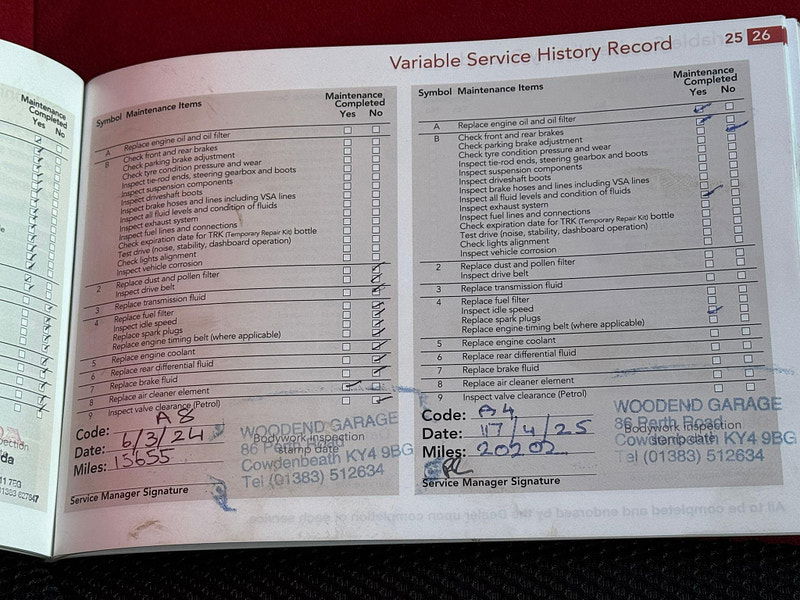 Variable Service History Record 25 26
Maintenance
Completed
Yes No
Symbol Maintenance Items
Maintenance
Completed
Yes No
A Replace engine oil and oil filter
B Check front and rear brakes
Check parking brake adjustment
Check tyre condition pressure and wear
Inspect tie-rod ends, steering gearbox and boots
Inspect suspension components
Inspect driveshaft boots
Inspect brake hoses and lines including VSA lines
Inspect all fluid levels and condition of fluids
Inspect exhaust system
Inspect fuel lines and connections
Check expiration date for TRK (Temporary Repair Kit) bottle
Test drive (noise, stability, dashboard operation)
Check lights alignment
Inspect vehicle corrosion
2 Replace dust and pollen filter
Inspect drive belt
3 Replace transmission fluid
4 Replace fuel filter
Inspect idle speed
Replace spark plugs
Replace engine timing belt (where applicable)
5 Replace engine coolant
6 Replace rear differential fluid
7 Replace brake fluid
8 Replace air cleaner element
9 Inspect valve clearance (Petrol)
Code: A 8
Date: 6/3/24
Miles: 15655
Bodywork inspection
stamp date
WOODEND GARAGE
86 Perth Road
Cowdenbeath KY4 9BG
Tel (01383) 512634
Service Manager Signature
Symbol Maintenance Items
Maintenance
Completed
Yes No
A Replace engine oil and oil filter
B Check front and rear brakes
Check parking brake adjustment
Check tyre condition pressure and wear
Inspect tie-rod ends, steering gearbox and boots
Inspect suspension components
Inspect driveshaft boots
Inspect brake hoses and lines including VSA lines
Inspect all fluid levels and condition of fluids
Inspect exhaust system
Inspect fuel lines and connections
Check expiration date for TRK (Temporary Repair Kit) bottle
Test drive (noise, stability, dashboard operation)
Check lights alignment
Inspect vehicle corrosion
2 Replace dust and pollen filter
Inspect drive belt
3 Replace transmission fluid
4 Replace fuel filter
Inspect idle speed
Replace spark plugs
Replace engine timing belt (where applicable)
5 Replace engine coolant
6 Replace rear differential fluid
7 Replace brake fluid
8 Replace air cleaner element
9 Inspect valve clearance (Petrol)
Code: A 4
Date: 17/4/25
Miles: 20202
Bodywork inspection
stamp date
WOODEND GARAGE
86 Perth Road
Cowdenbeath KY4 9BG
Tel (01383) 512634
Service Manager Signature